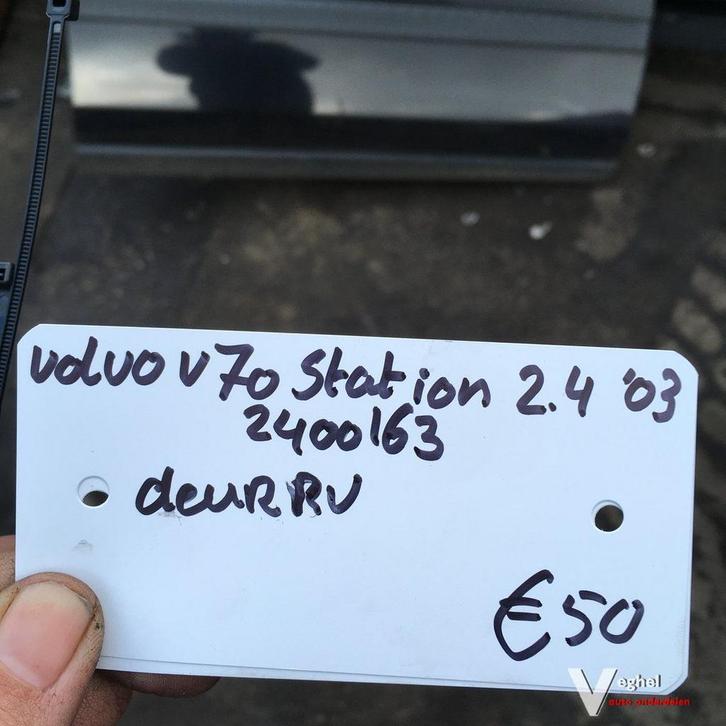 volvo v70 Station 2.4 '03
2400163
deuR RV
€50
Veghel
auto onderdelen